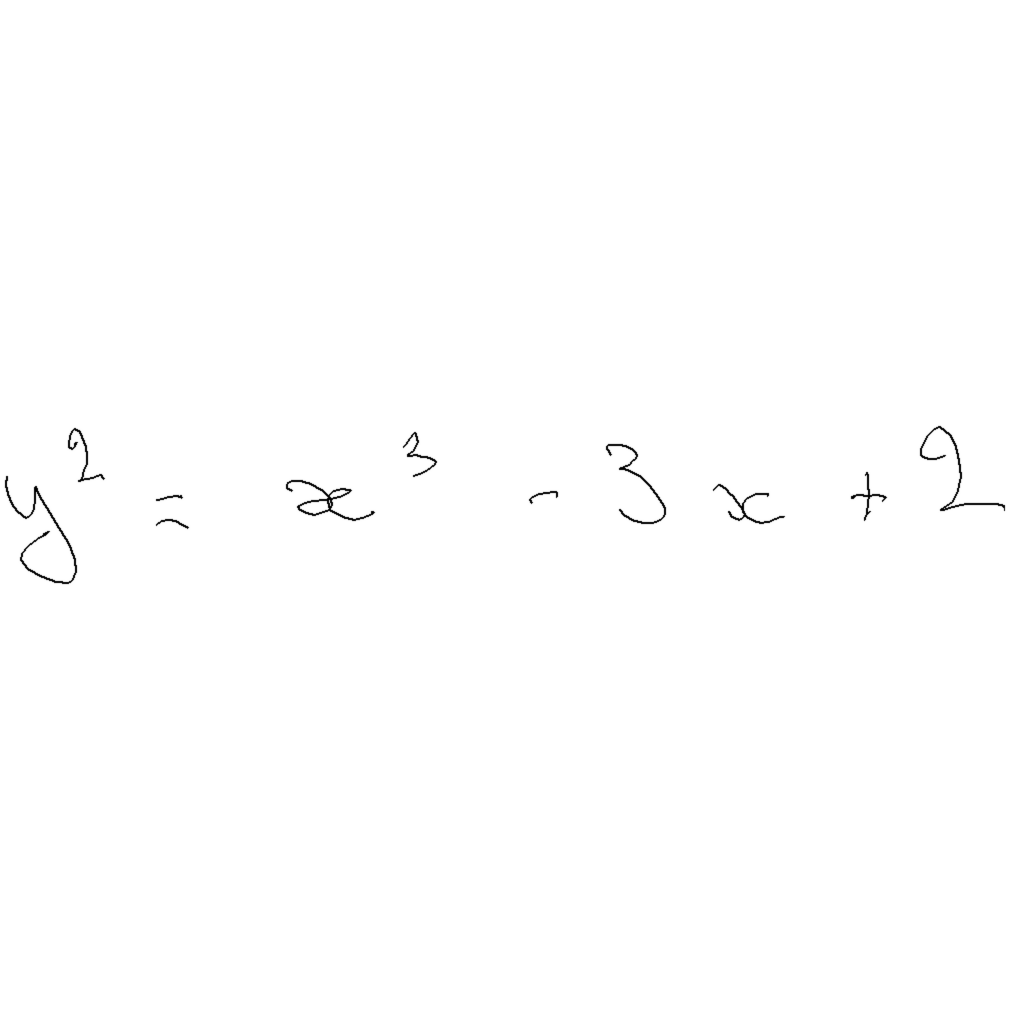 y² = x³ - 3x + 2